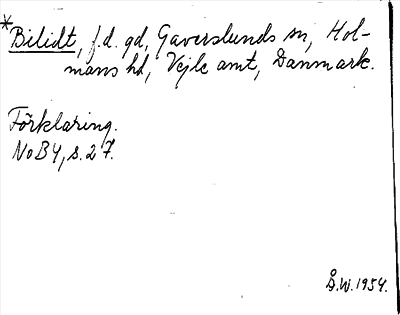 *Bilidt, f.d. gd, Gaverslunds sn, Hol-
mans hd, Vejle amt, Danmark.
Förklaring.
NoB4, s. 27.
Å.W. 1954.